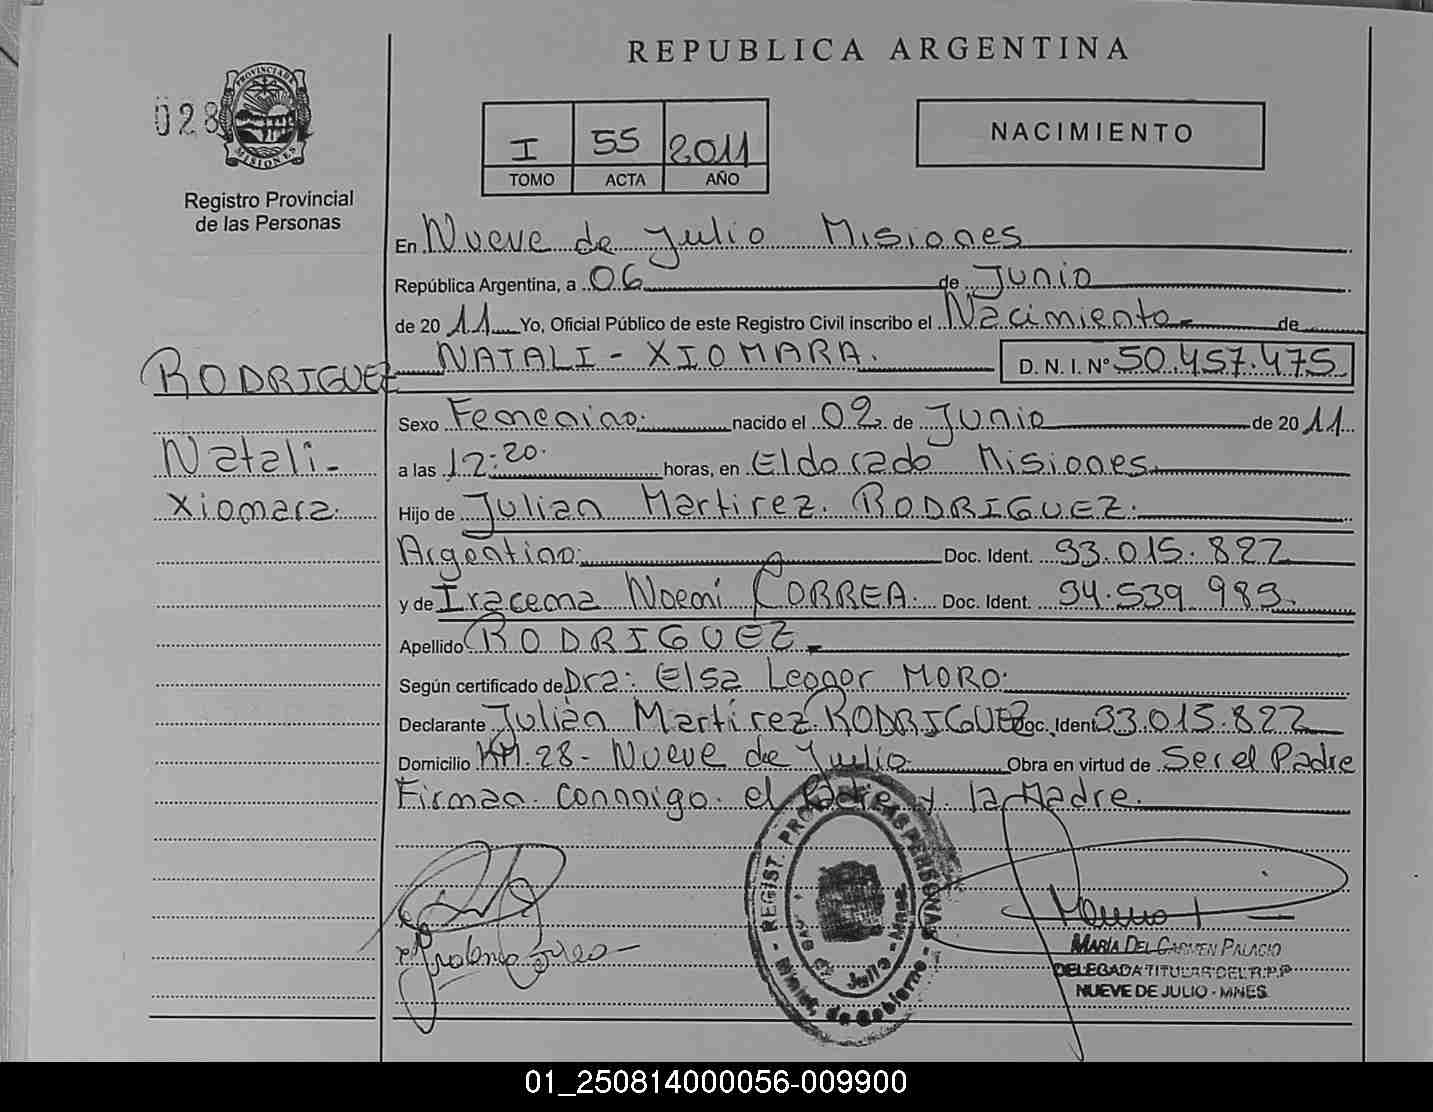 REPUBLICA ARGENTINA
028
PROVINCIA DE MISIONES
Registro Provincial
de las Personas
I 55 2011
TOMO ACTA AÑO
NACIMIENTO
En Nueve de Julio Misiones
República Argentina, a 06 de Junio
de 2011 Yo, Oficial Público de este Registro Civil inscribo el Nacimiento de
RODRIGUEZ NATALI - XIOMARA. D. N. I. Nº 50.457.475
Sexo Femenino. nacido el 02 de Junio de 2011
Natali- a las 12:20. horas, en Eldorado Misiones
Xiomara. Hijo de Julian Martirez. RODRIGUEZ.
Argentino. Doc. Ident. 33.015.822
y de Iracema Noemí CORREA. Doc. Ident. 34.539.983
Apellido RODRIGUEZ.-
Según certificado de Dra: Elsa Leonor MORO.
Declarante Julián Martirez RODRIGUEZ Doc. Ident. 33.015.822
Domicilio KM.28- Nueve de Julio Obra en virtud de Ser el Padre
Firman connnigo. el Padre y la Madre.
REGIST. PROV. DE LAS PERSONAS
Minist. de Gobierno
9 de Julio - Mnes.
MARÍA DEL CARMEN PALACIO
DELEGADA TITULAR DEL R.P.P
NUEVE DE JULIO - MNES
01_250814000056-009900